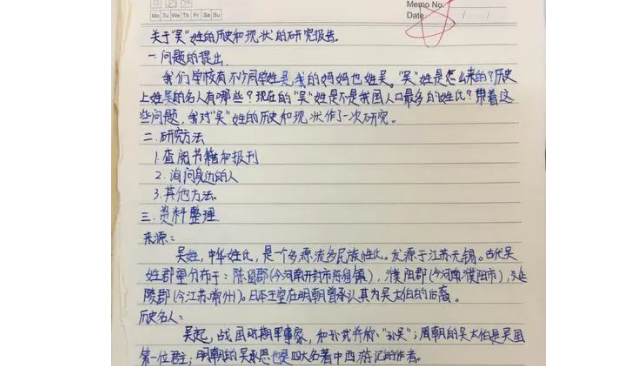 Memo No.
Mo Tu We Th Fr Sa Su
Date / /
关于"吴"姓的历史和现状的研究报告.
一.问题的提出.
我们学校有不少同学姓吴,我的妈妈也姓吴."吴"姓是怎么来的?历史
上姓吴的名人有哪些?现在的"吴"姓是不是我国人口最多的姓氏?带着这
些问题,我对"吴"姓的历史和现状作了一次研究。
二.研究方法
1.查阅书籍和报刊
2.询问身边的人
3.其他方法.
三.资料整理
来源:
吴姓,中华姓氏,是个多源流多民族姓氏.发源于江苏无锡。古代吴
姓郡望分布于:陈留郡(今河南开封市陈留镇),濮阳郡(今河南濮阳市),
陵郡(今江苏常州)。日本王室在明朝曾承认其为吴太伯的后裔。
历史名人:
吴起,战国时期军事家,和孙武并称"孙吴";周朝的吴太伯是吴国
第一位君主;明朝的吴承恩也是四大名著中西游记的作者。